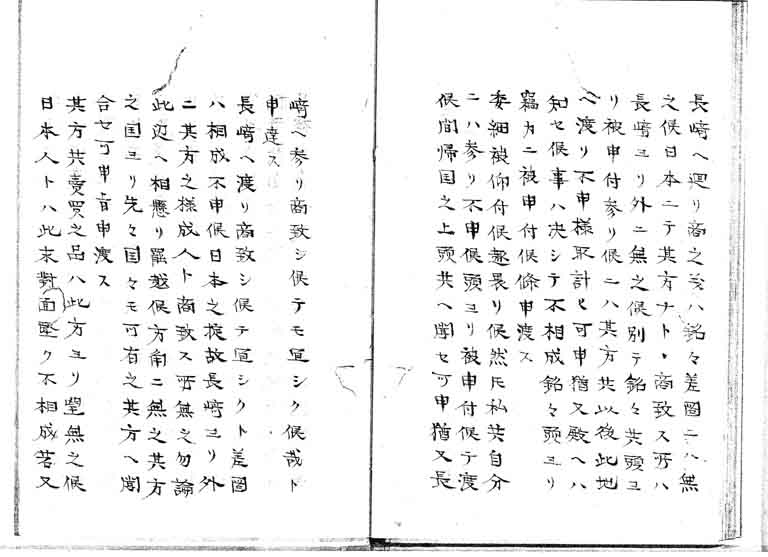 長崎ヘ廻リ商之義ハ銘々差圖ニハ無
之候日本ニテ其方ナト丶商致ス所ハ
長崎ヨリ外ニ無之候別テ銘々共頭ヨ
リ被申付参リ候ニハ其方共以後此地
ヘ渡リ不申様取計ヒ可申猶又殿ヘハ
知セ候事ハ决シテ不相成銘々頭ヨリ
竊カニ被申付候條申渡ス
委細被仰付候趣畏リ候然𪜈私共自分
ニハ参リ不申候頭ヨリ被申付候テ渡
候間帰国之上頭共ヘ聞セ可申猶又長
崎ヘ参リ商致シ候テモ宜シク候哉ト
申達ス
長崎ヘ渡リ商致シ候テ宜シクト差圖
ハ相成不申候日本之掟故長崎ヨリ外
ニ其方之様成人ト商致ス所無之勿論
此辺ヘ相懸リ罷越候方角ニ無之其方
之国ヨリ先々国々モ可有之其方ヘ聞
合セ可申旨申渡ス
其方共賣買之品ハ此方ヨリ望無之候
日本人トハ此末對面堅ク不相成若又